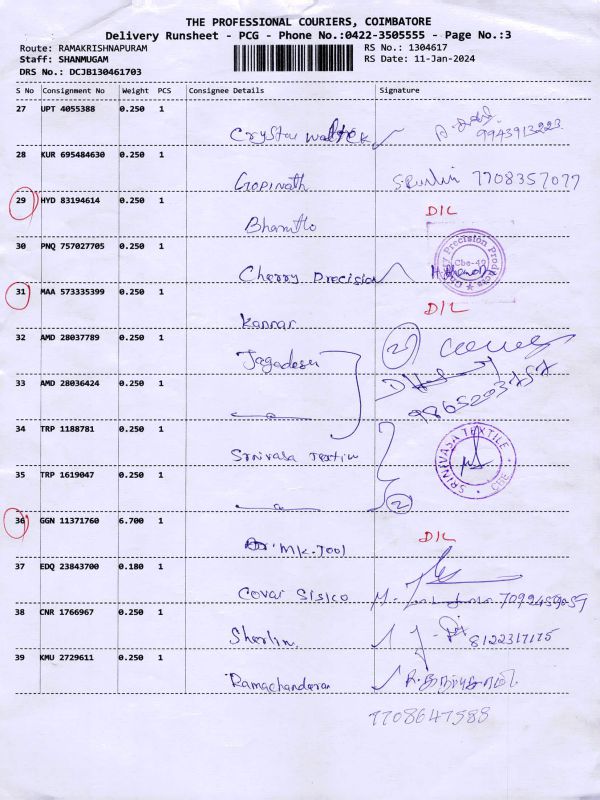 THE PROFESSIONAL COURIERS, COIMBATORE
Delivery Runsheet - PCG - Phone No.:0422-3505555 - Page No.:3
Route: RAMAKRISHNAPURAM RS No.: 1304617
Staff: SHANMUGAM RS Date: 11-Jan-2024
DRS No.: DCJB130461703
S No Consignment No Weight PCS Consignee Details Signature
27 UPT 4055388 0.250 1
Crystal
9943913223
28 KUR 695484630 0.250 1
Gopinath 7708357077
29 HYD 83194614 0.250 1 D/L
30 PNQ 757027705 0.250 1
Cherry Precision
Cherry Precision Products
Cbe-42
31 MAA 573335399 0.250 1 D/L
Kannan
32 AMD 28037789 0.250 1 (2)
Jagadesh
33 AMD 28036424 0.250 1
9865203757
34 TRP 1188781 0.250 1
Srnivasa Textile
SRINIVASA TEXTILE
CBE
35 TRP 1619047 0.250 1
(2)
36 GGN 11371760 6.700 1 D/L
MK. Tool
37 EDQ 23843700 0.180 1
Covai Sisico
38 CNR 1766967 0.250 1
Sherlin 8122317175
39 KMU 2729611 0.250 1
Ramachandran
7708647588